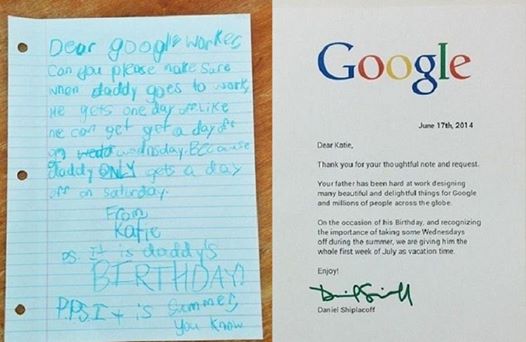 Dear google worker,
Can you please make sure
when daddy goes to work,
He gets one day off. Like
he can get get a day off
on wednesday. Because
daddy ONLY gets a day
off on saturday.
From
Katie
P.S. It is daddy's
BIRTHDAY!
P.P.S. It is summer,
you know
Google
June 17th, 2014
Dear Katie,
Thank you for your thoughtful note and request.
Your father has been hard at work designing
many beautiful and delightful things for Google
and millions of people across the globe.
On the occasion of his Birthday, and recognizing
the importance of taking some Wednesdays
off during the summer, we are giving him the
whole first week of July as vacation time.
Enjoy!
Daniel Shiplacoff